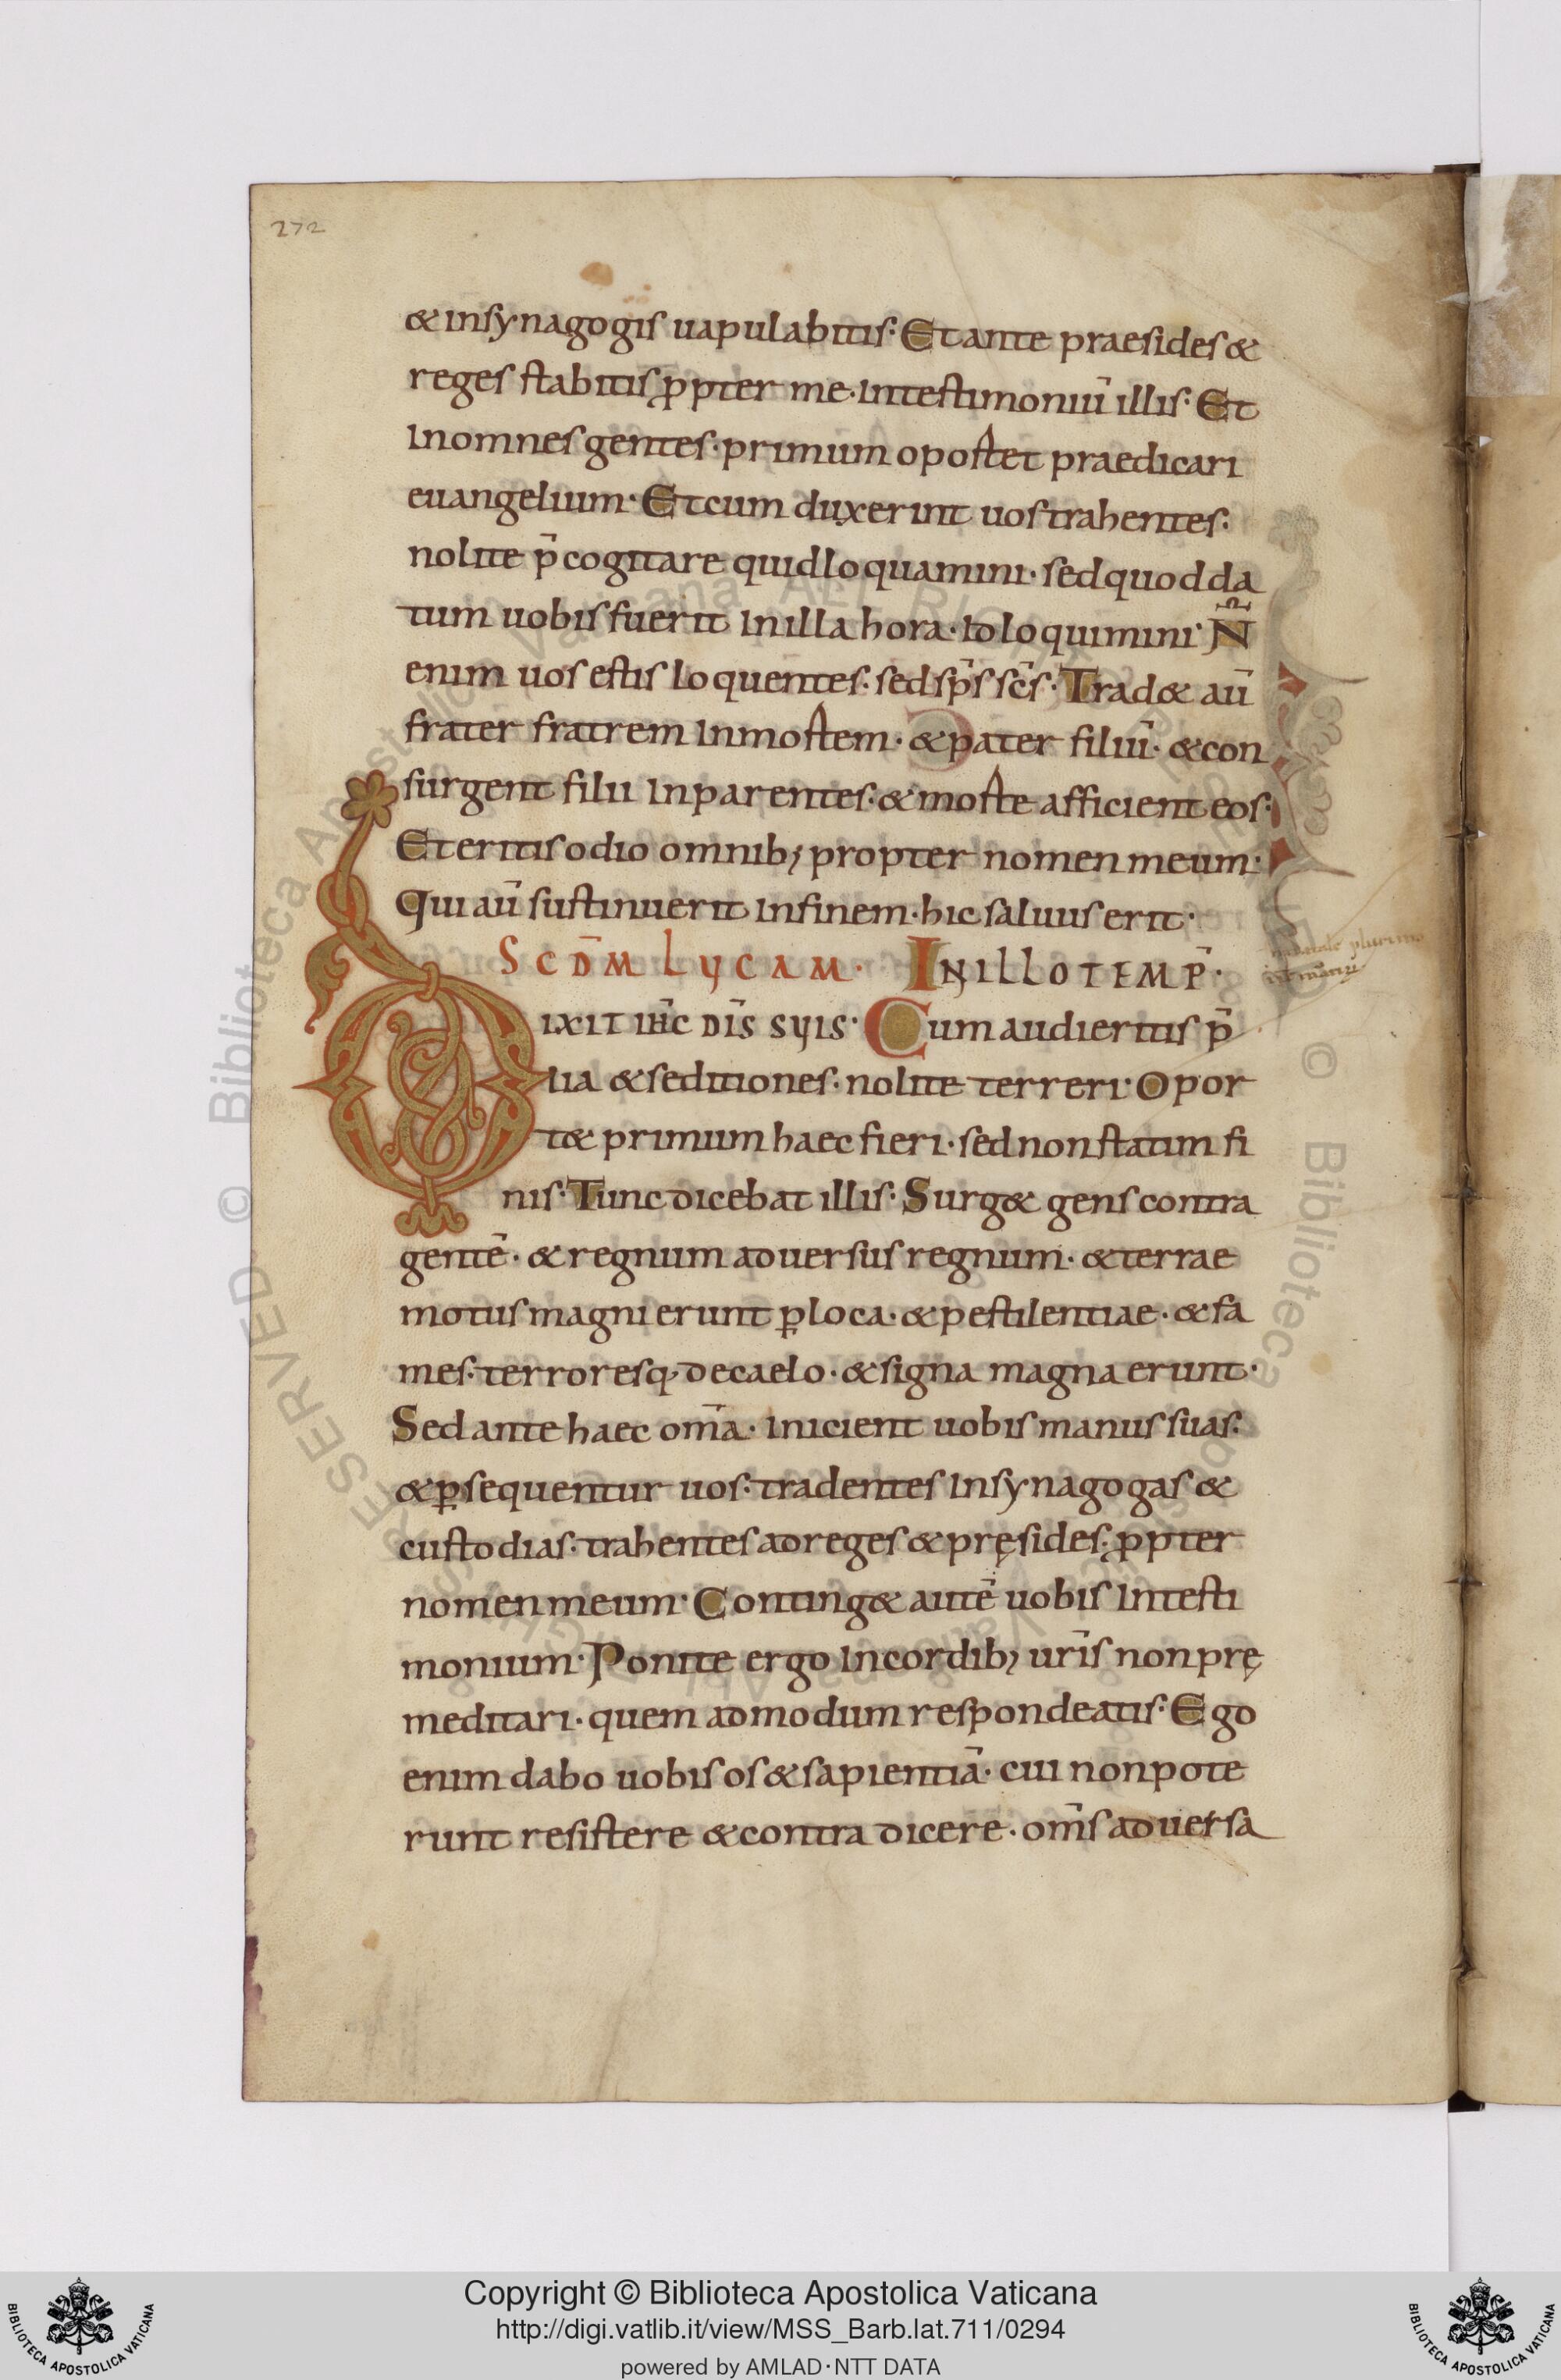 272
& insynagogis uapulabitis· Et ante praesides &
reges stabitis ꝓpter me· Intestimoniū illis· Et
Inomnes gentes· primum oportet praedicari
euangelium· Et cum duxerint uos trahentes·
nolite p̄cogitare quid loquamini· sed quod da
tum uobis fuerit Inilla hora· Id loquimini· N̄
enim uos estis loquentes· sed sp̄s sc̄s· Trad& aū
frater fratrem Inmortem· & pater filiū· & con
surgent filii Inparentes· & morte afficient eos·
Et eritis odio omnib; propter nomen meum·
Qui aū sustinuerit Infinem· hic saluus erit·
SCDM̄ LUCAM· INILLOTEMP̄·
DIXIT IH̄C DIS̄ SUIS· Cum audieritis p̄
lia & seditiones· nolite terreri· Opor
t& primum haec fieri· sed non statim fi
nis· Tunc dicebat illis· Surg& gens contra
gentē· & regnum aduersus regnum· & terrae
motus magni erunt ꝑ loca· & pestilentiae· & fa
mes· terroresq· decaelo· & signa magna erunt·
Sed ante haec om̄a· Inicient uobis manus suas·
& ꝑsequentur uos· tradentes Insynagogas &
custodias· trahentes adreges & pręsides· ꝓpter
nomen meum· Conting& autē uobis Intesti
monium· Ponite ergo Incordib; ur̄is non prę
meditari· quem admodum respondeatis· Ego
enim dabo uobis os & sapientiā· cui non pote
runt resistere & contra dicere· om̄s aduersa
Copyright © Biblioteca Apostolica Vaticana
http://digi.vatlib.it/view/MSS_Barb.lat.711/0294
powered by AMLAD·NTT DATA
BIBLIOTECA APOSTOLICA VATICANA
BIBLIOTECA APOSTOLICA VATICANA